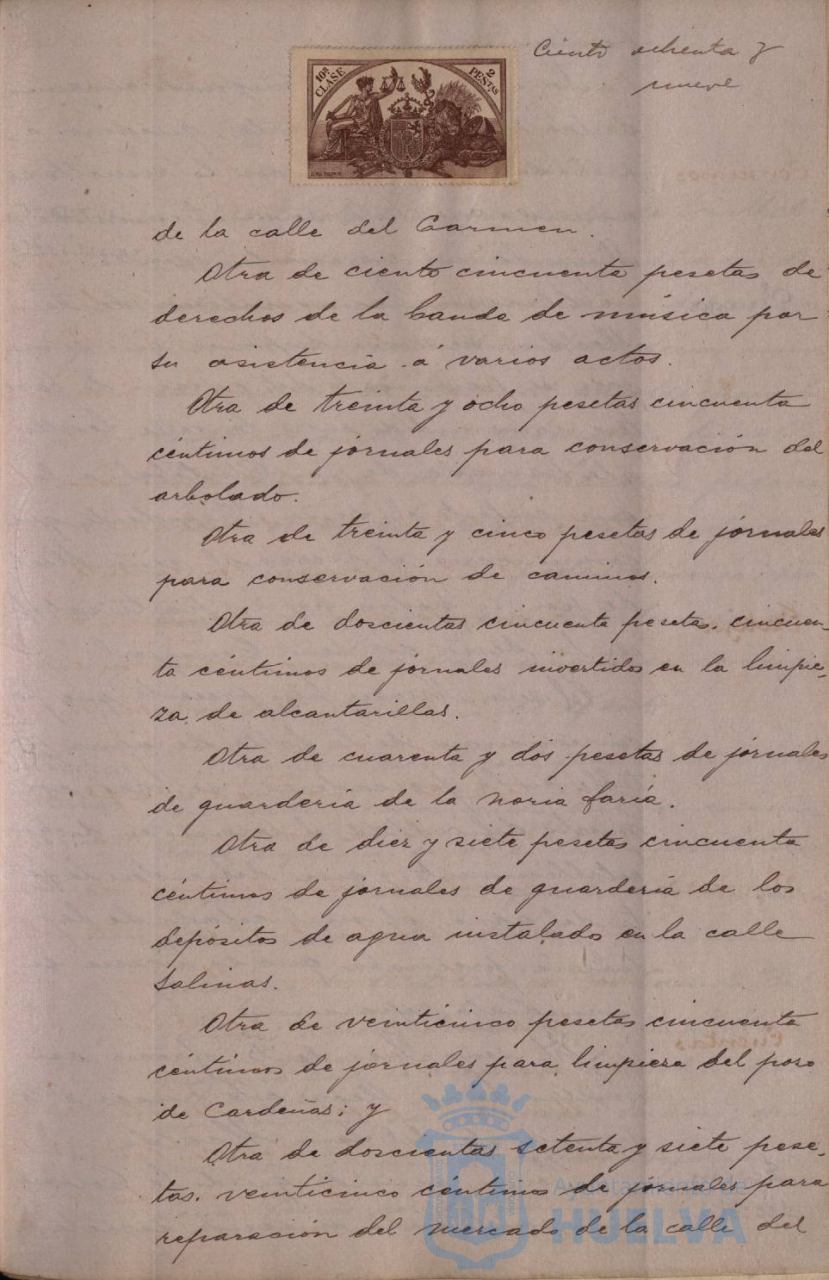 Ciento ochenta y
nueve
10ª CLASE
2 PESETAS
de la calle del Carmen.
Otra de ciento cincuenta pesetas de
derechos de la banda de música por
su asistencia á varios actos.
Otra de treinta y ocho pesetas cincuenta
céntimos de jornales para conservación del
arbolado.
Otra de treinta y cinco pesetas de jornales
para conservación de caminos.
Otra de doscientas cincuenta pesetas, cincuen-
ta céntimos de jornales invertidos en la limpie-
za de alcantarillas.
Otra de cuarenta y dos pesetas de jornales
de guardería de la noria faría.
Otra de diez y siete pesetas cincuenta
céntimos de jornales de guardería de los
depósitos de agua instalados en la calle
Salinas.
Otra de veinticinco pesetas cincuenta
céntimos de jornales para limpieza del pozo
de Cardeñas; y
Otra de doscientas setenta y siete pese-
tas, veinticinco céntimos de jornales para
reparación del mercado de la calle del
Ayuntamiento de
HUELVA